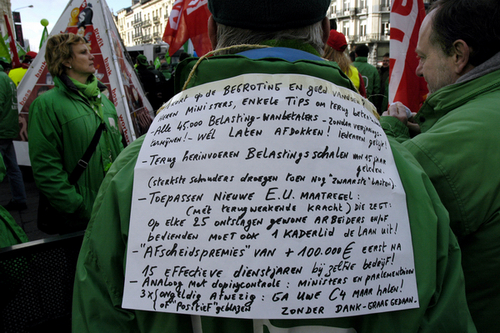 OP DE BEGROTING EN
HEREN MINISTERS, ENKELE TIPS OM TERUG
- ALLE 45.000 BELASTING-WANBETALERS - ZONDER
- WÉL LATEN AFDOKKEN! IEDEREEN GELIJK!
- TERUG HERINVOEREN BELASTINGSCHALEN VAN 15 JAAR
GELEDEN.
(STERKSTE SCHOUDERS DROEGEN TOEN NOG "ZWAARSTE" LASTEN)
- TOEPASSEN NIEUWE E.U. MAATREGEL:
(MET TERUGWERKENDE KRACHT) DIE ZEGT:
OP ELKE 25 ONTSLAGEN GEWONE ARBEIDERS OF
BEDIENDEN MOET OOK 1 KADERLID DE LAAN UIT!
- "AFSCHEIDSPREMIES" VAN + 100.000€ EERST NA
15 EFFECTIEVE DIENSTJAREN BIJ ZELFDE BEDRIJF!
- ANALOOG MET DOPINGCONTROLE: MINISTERS EN PARLEMENTAIREN
3X ONGELDIG AFWEZIG: GA UWE C4 MAAR HALEN!
OF "POSITIEF" GEBLAZEN ZONDER DANK - GRAAG GEDAAN.